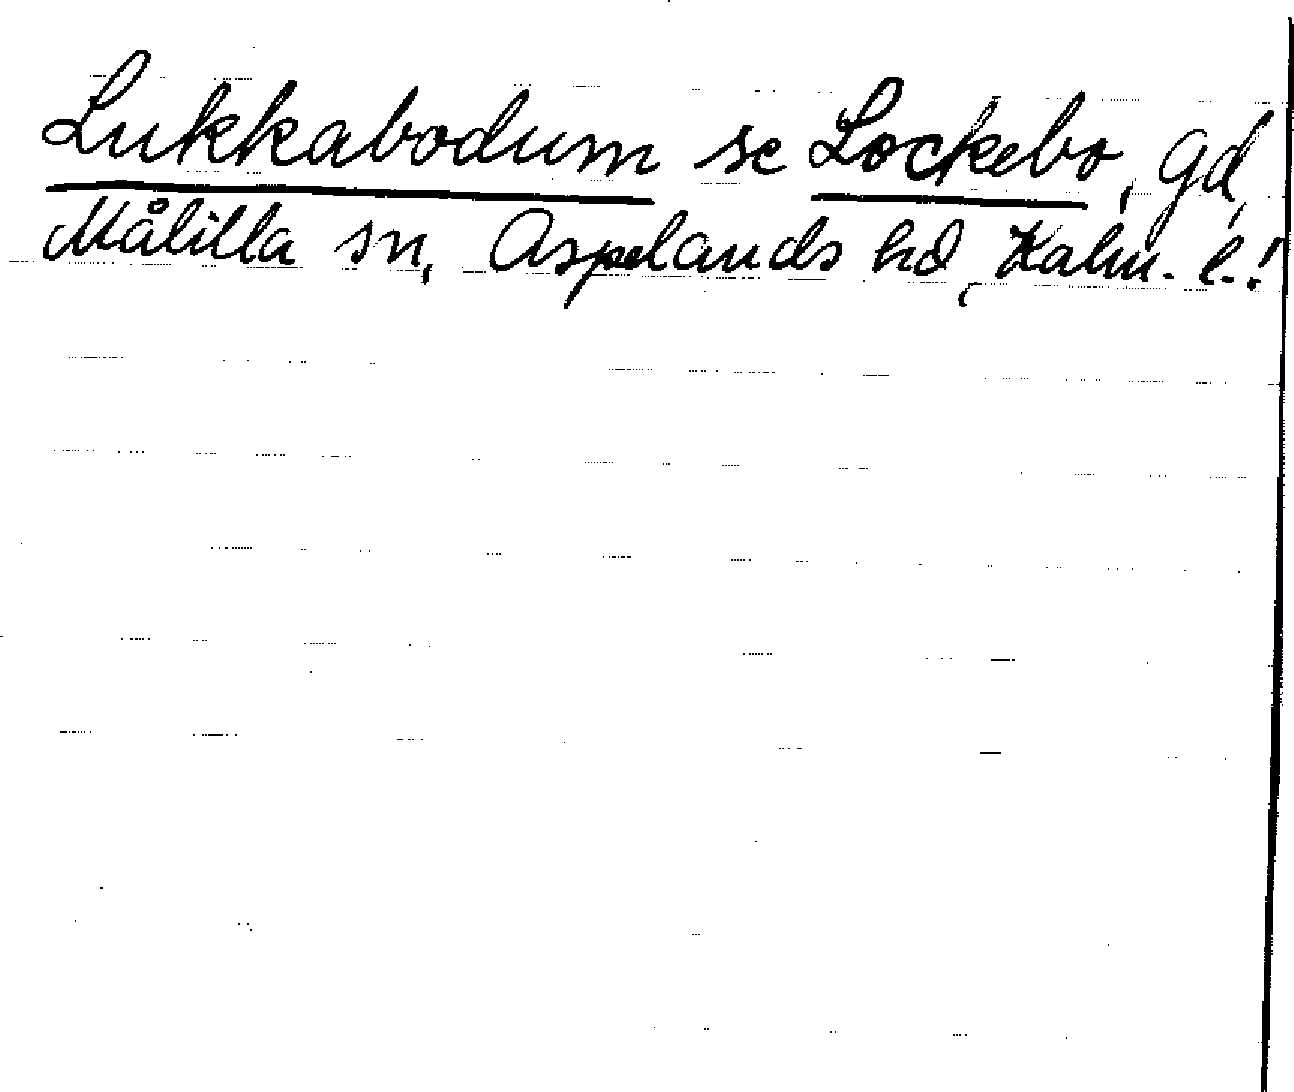 Lukkabodum se Lockebo, gd,
Målilla sn, Aspelands hd, Kalm. l.!